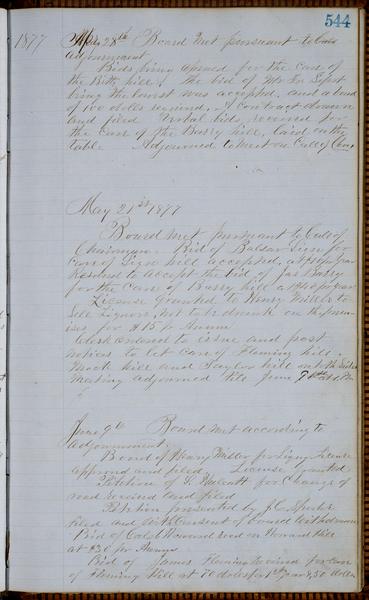 544
1877 28th Board met pursuant to
adjournment
Bids being opened for the care of
the hill. The bid of
being the lowest was accepted, and a bond
of 100 dollars required. A contract drawn
and filed. Verbal bids received for
the care of the Barry hill, laid on the
table. Adjourned to meet on Call of Chair
May 21st 1877
Board met pursuant to Call of
Chairman. Bid of for
care of hill accepted, at per year
Resolved to accept the bid of Jas Barry
for the Care of Barry hill at per year
License granted to Henry Miller to
Sell Liquors, not to be drunk on the prem-
ises for $15 pr Annum
Clerk ordered to issue and post
notices to let Care of Fleming hill.
hill and Taylor hill
Meeting adjourned till June 9th at 1 Pm
June 9th Board met according to
adjournment.
Bond of Henry Miller for Liquor License
approved and filed. License granted
Petition of for Change of
road received and filed
Petition presented by J.C.
filed and with Consent of board withdrawn
Bid of Howard road on Howard Hill
at $30 per Annum
Bid of James Fleming received for care
of Fleming Hill at 70 dolls for 1st year & 50 dolls